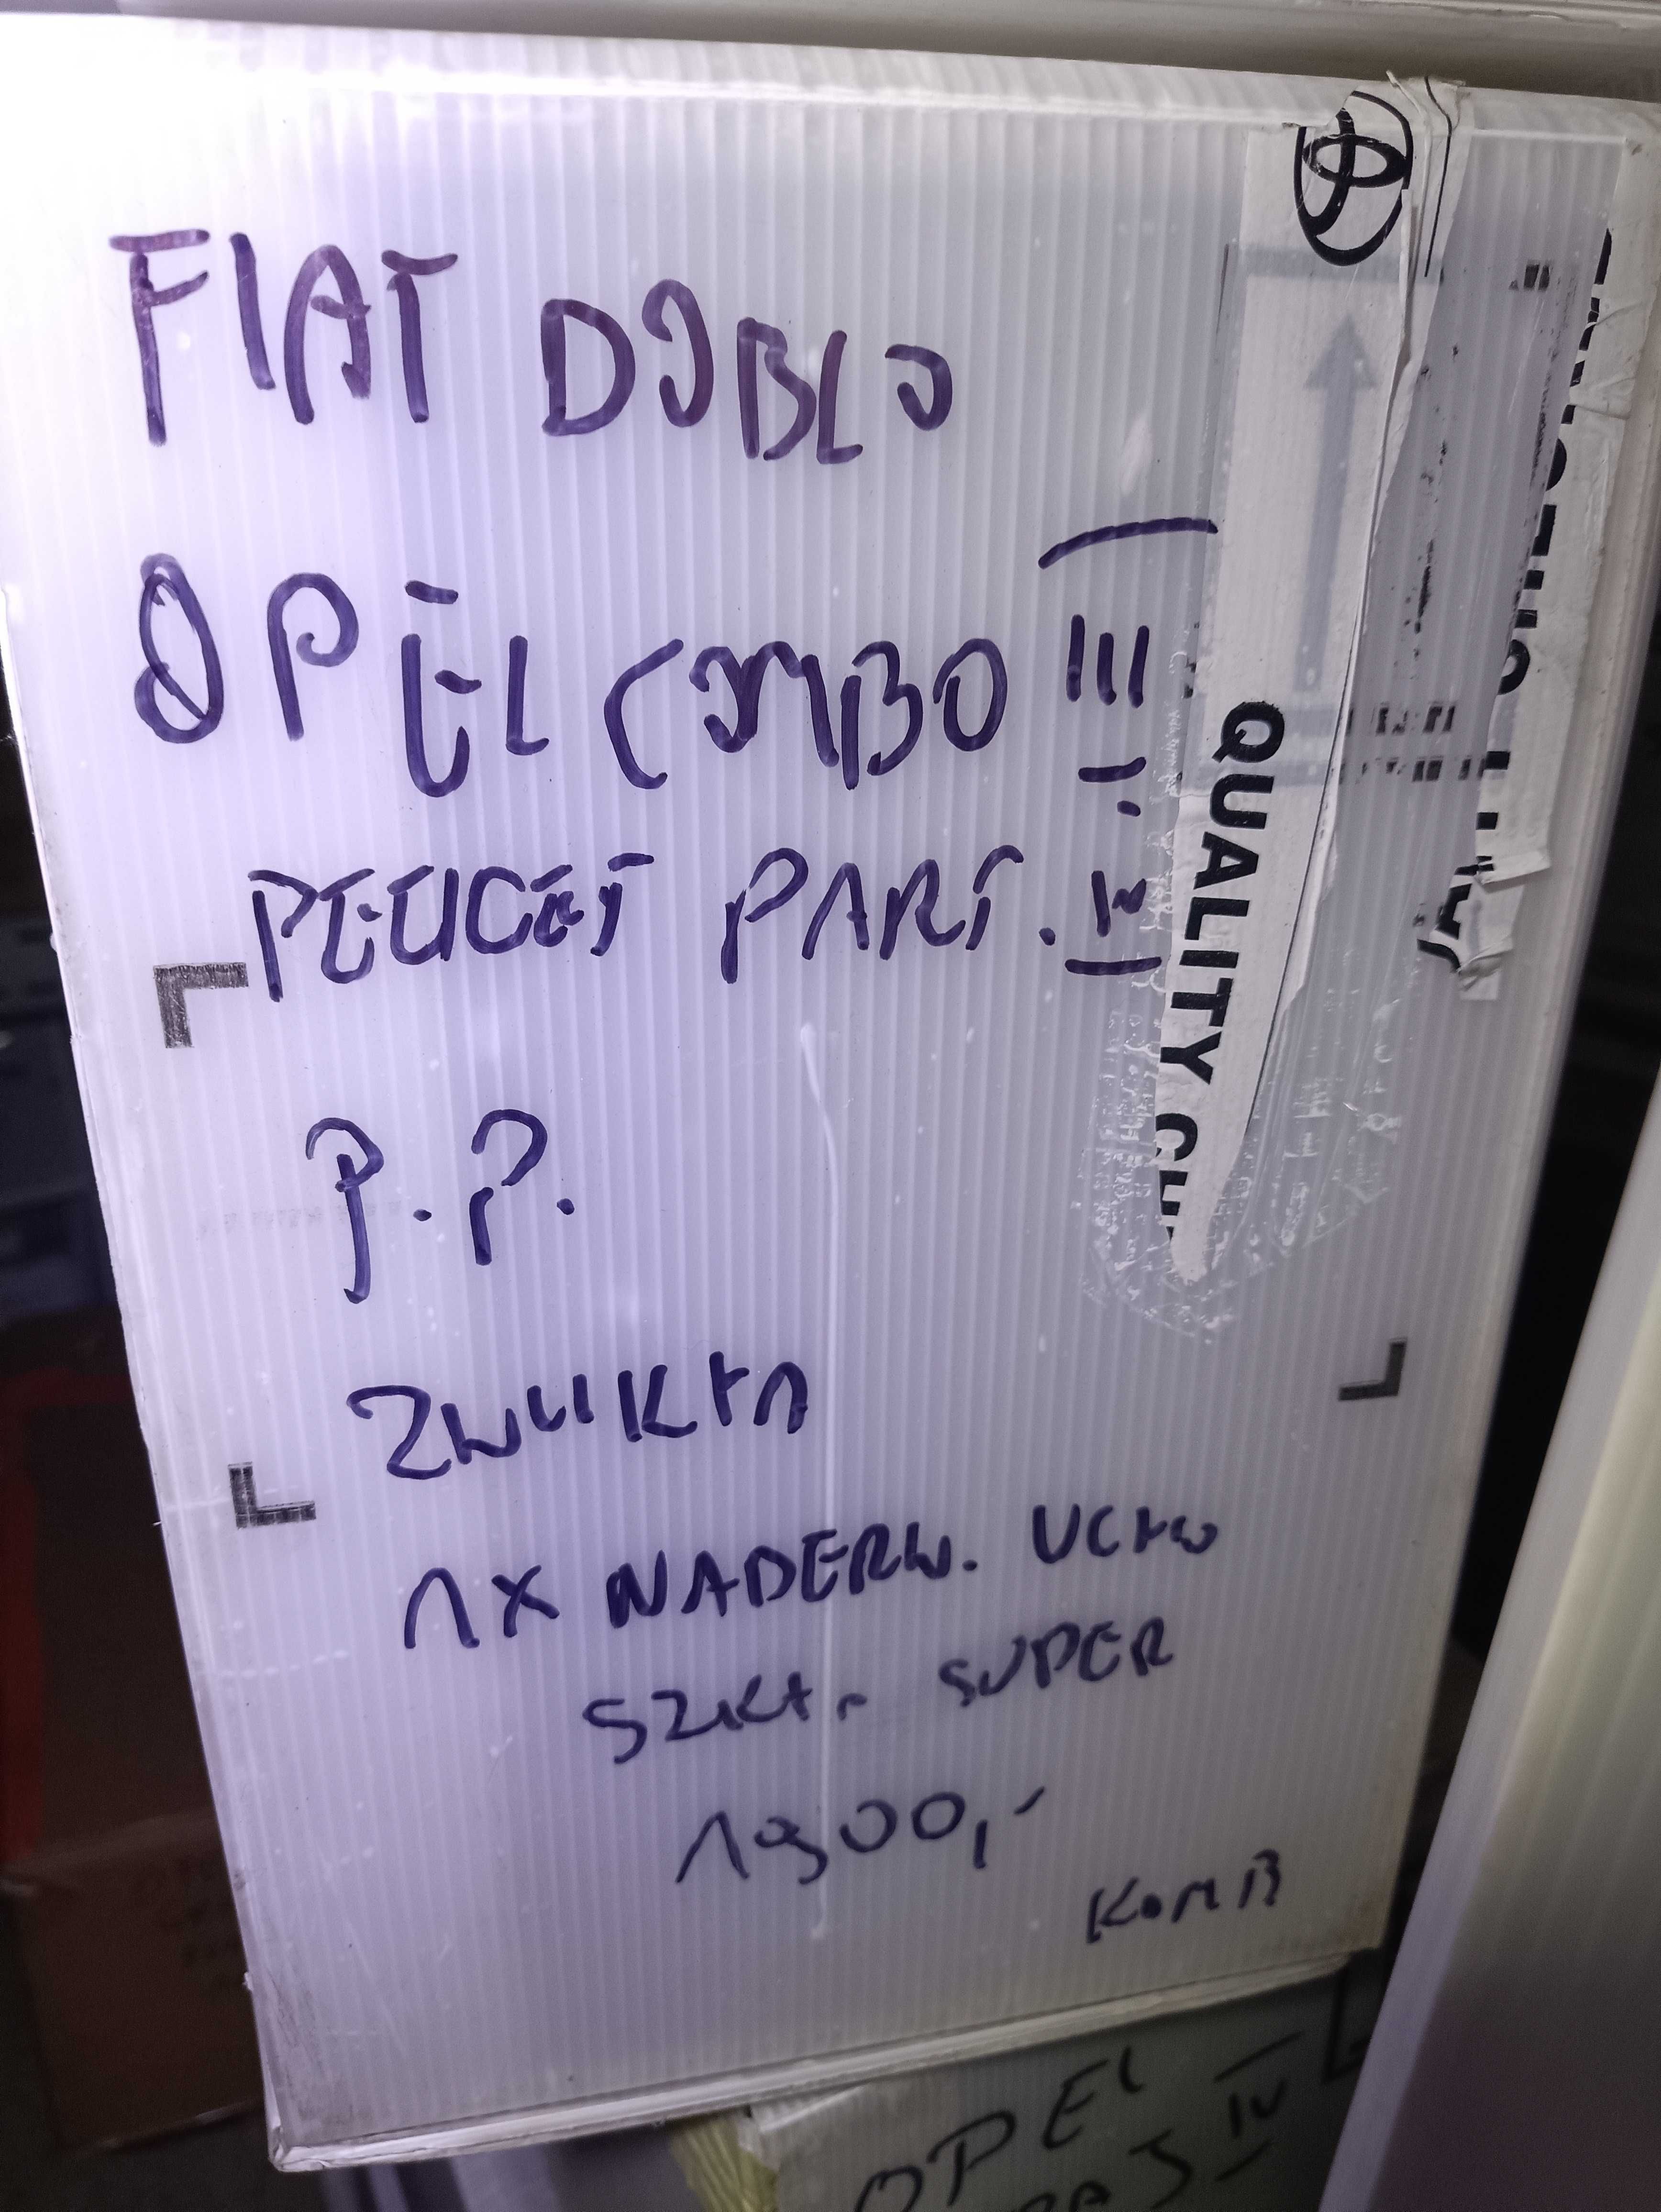 FIAT DOBLO
OPEL COMBO III
PEUGET PART. III
P.P.
ZWYKŁA
1X NADERW. UCHO
SZKŁA SUPER
1900,-
KOMB
QUALITY
OPEL
IV